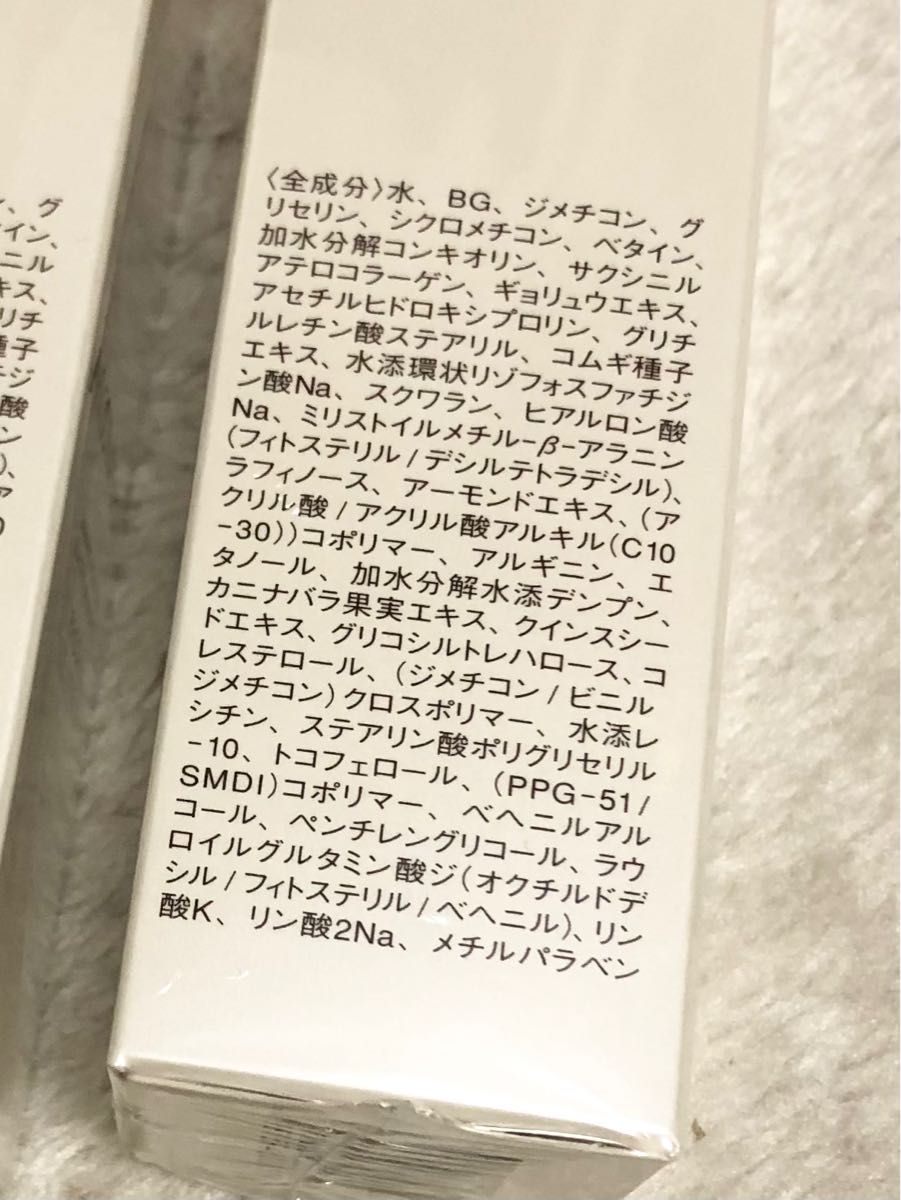 〈全成分〉水、BG、ジメチコン、グ
リセリン、シクロメチコン、ベタイン、
加水分解コンキオリン、サクシニル
アテロコラーゲン、ギョリュウエキス、
アセチルヒドロキシプロリン、グリチ
ルレチン酸ステアリル、コムギ種子
エキス、水添環状リゾフォスファチジ
ン酸Na、スクワラン、ヒアルロン酸
Na、ミリストイルメチル-β-アラニン
(フィトステリル/デシルテトラデシル)、
ラフィノース、アーモンドエキス、(ア
クリル酸/アクリル酸アルキル(C10
-30))コポリマー、アルギニン、エ
タノール、加水分解水添デンプン、
カニナバラ果実エキス、クインスシー
ドエキス、グリコシルトレハロース、コ
レステロール、(ジメチコン/ビニル
ジメチコン)クロスポリマー、水添レ
シチン、ステアリン酸ポリグリセリル
-10、トコフェロール、(PPG-51/
SMDI)コポリマー、ベヘニルアル
コール、ペンチレングリコール、ラウ
ロイルグルタミン酸ジ(オクチルドデ
シル/フィトステリル/ベヘニル)、リン
酸K、リン酸2Na、メチルパラベン
、グ
イン、
ニル
キス、
リチ
種子
チジ
酸
ン
)、
ア
0